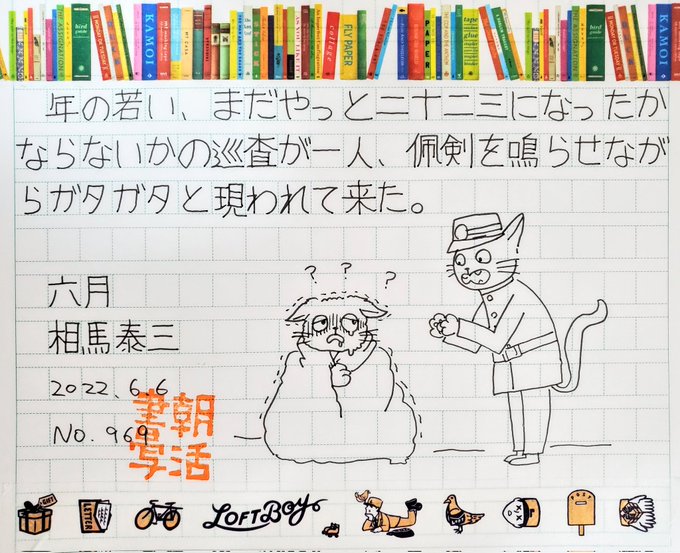 KAMOI
bird guide
collage
FLY PAPER
PAPER
tape
glue
bird guide
KAMOI
年の若い、まだやっと二十二三になったか
ならないかの巡査が一人、佩剣を鳴らせなが
らガタガタと現われて来た。
? ? ?
六月
相馬泰三
2022.6.6
No.969
朝活
書写
GIFT
LETTER
LOFTBOY
POST